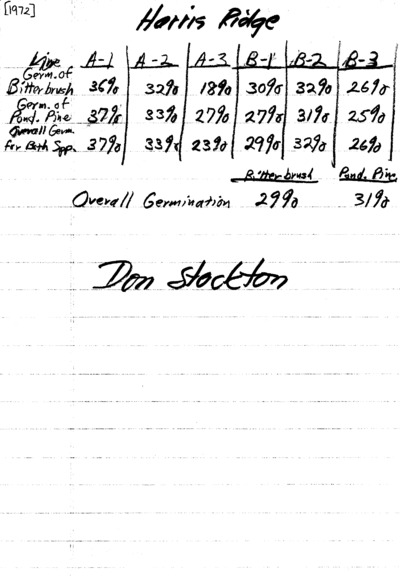 [1972]
Harris Ridge
Line A-1 A-2 A-3 B-1 B-2 B-3
Germ. of
Bitterbrush 36% 32% 18% 30% 32% 26%
Germ. of
Pond. Pine 37% 33% 27% 27% 31% 25%
Overall Germ.
for Both Spp. 37% 33% 23% 29% 32% 26%
Bitterbrush Pond. Pine
Overall Germination 29% 31%
Don Stockton